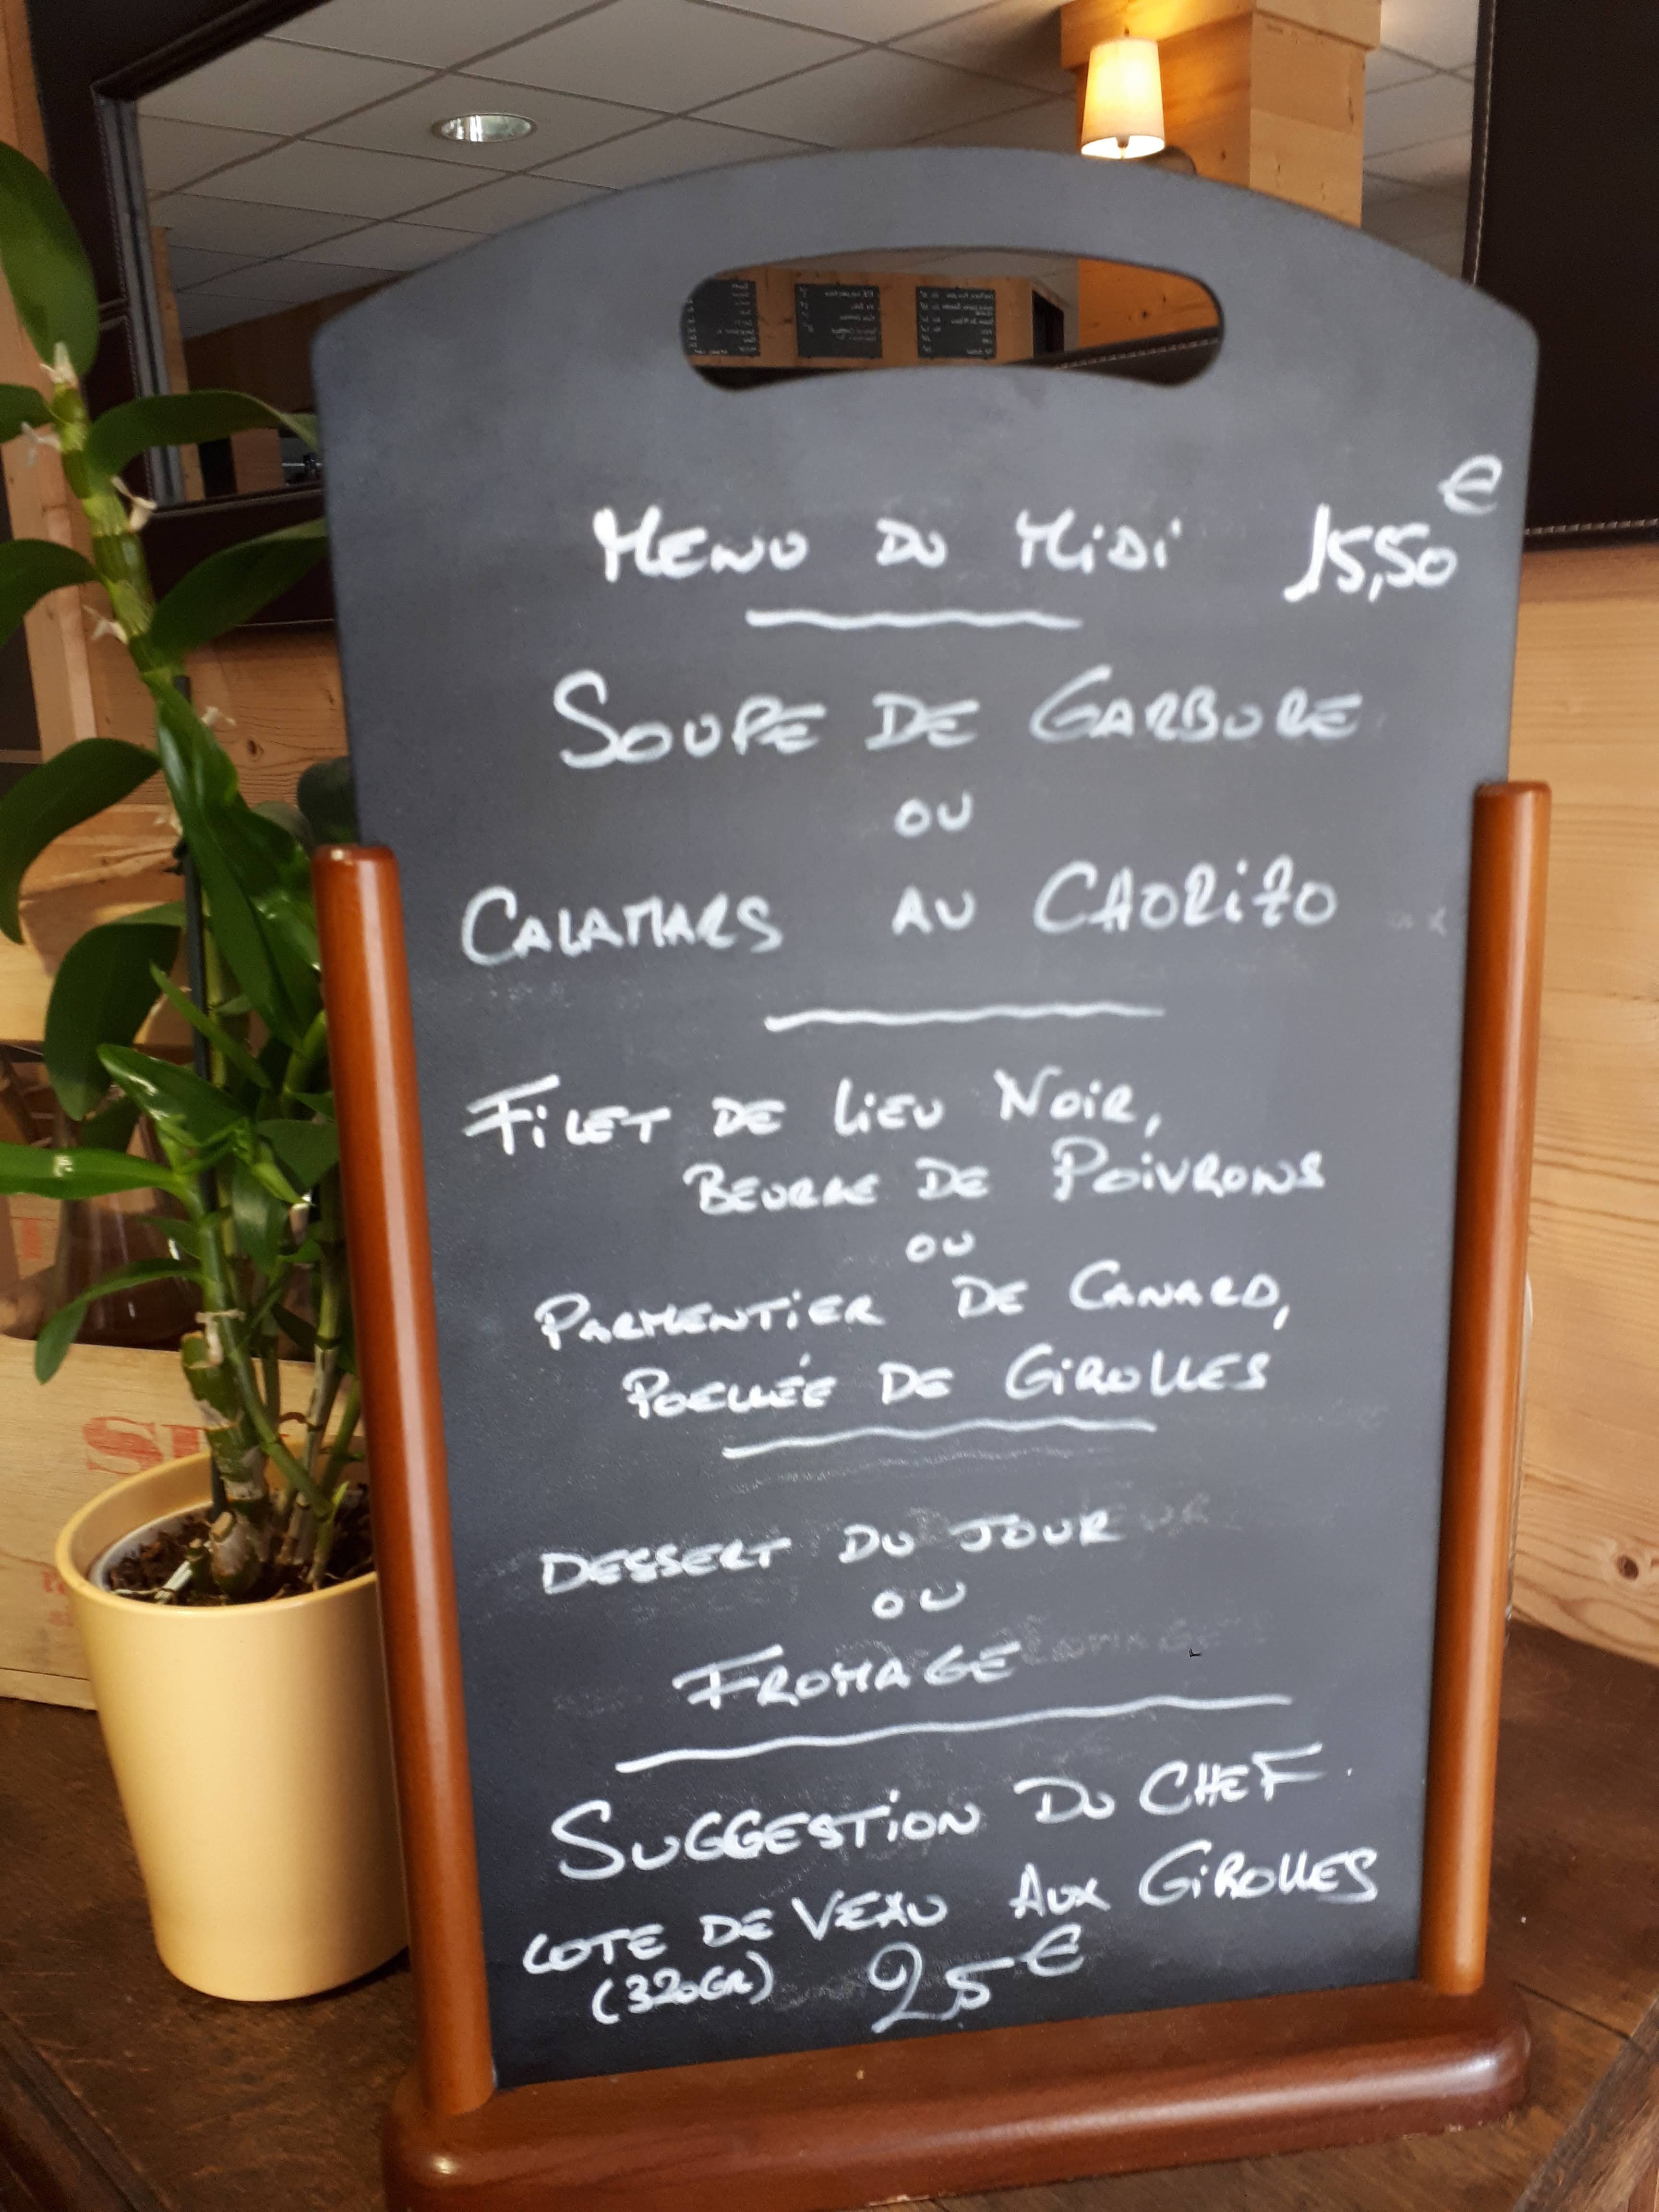 MENU DU MIDI 15,50€
SOUPE DE GARBURE
OU
CALAMARS AU CHORIZO
FILET DE LIEU NOIR,
BEURRE DE POIVRONS
OU
PARMENTIER DE CANARD,
POELLÉE DE GIROLLES
DESSERT DU JOUR
OU
FROMAGE
SUGGESTION DU CHEF
COTE DE VEAU AUX GIROLLES
(320GR) 25€